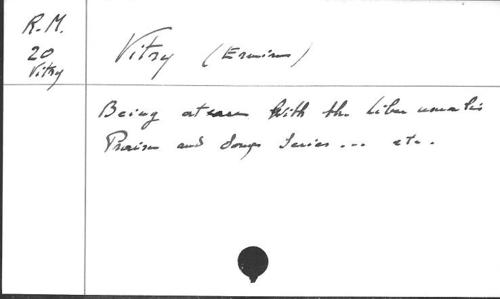 R.M.
20
Vitry
Vitry (Ermine)
Being at with the Liber
Praise and Songs Series ... etc.